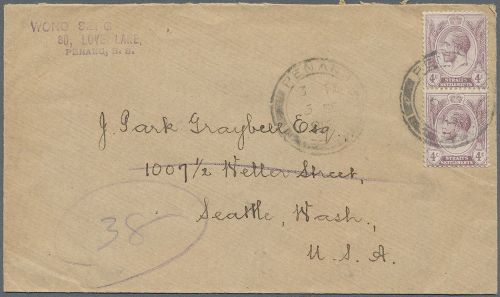 WONG SENG
80, LOVE LANE,
PENANG, S. S.
PENANG
4c 4c
STRAITS
SETTLEMENTS
4c 4c
STRAITS
SETTLEMENTS
J. Park Graybell Esq.,
1007½ Weller Street,
Seattle, Wash.,
U. S. A.
38